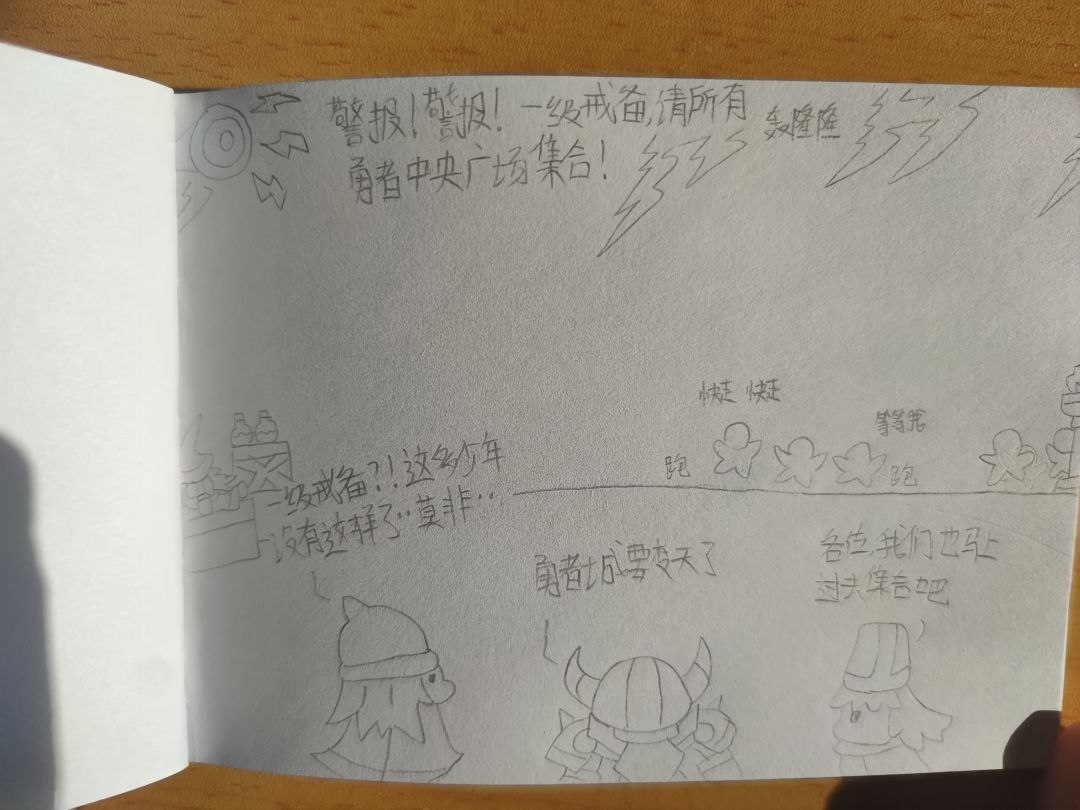 警报！警报！一级戒备,请所有
勇者中央广场集合！
轰隆隆
快走 快走
等等我
跑
跑
一级戒备？！这多少年
没有这样了‥莫非‥
勇者城要变天了
各位,我们也马上
过去集合吧